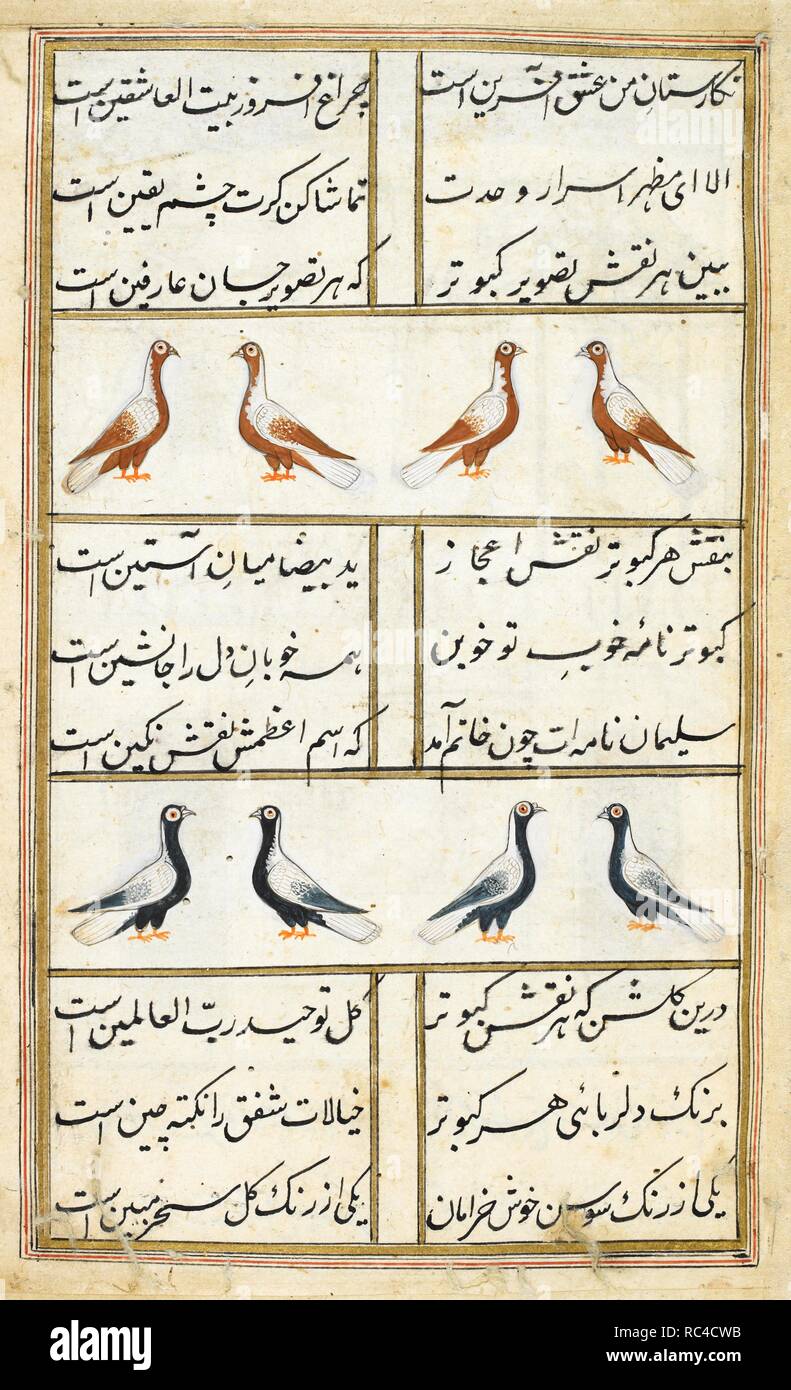 نگارستانِ من عشق آفرین است چراغ افروز بیت العاشقین است
الا ای مظهر اسرار وحدت تماشا کن کرت چشم یقین است
ببین هر نقش تصویر کبوتر که هر تصویر جان عارفین است
بنقش هر کبوتر نقش اعجاز ید بیضا میانِ آستین است
کبوتر نامه خوبِ تو خوبن همه خوبانِ دل را جانشین است
سلیمان نامه ات چون خاتم آمد که اسم اعظمش نقش نگین است
درین گلشن که هر نقش کبوتر گل توحید ربّ العالمین است
برنک دلربائی هر کبوتر خیالات شفق را نکته چین است
یکی از رنک سوسن خوش خرامان یکی از رنک گل سحر مبین است
alamy
alamy stock photo
RC4CWB
www.alamy.com